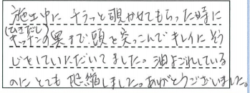 施工中に、チラッと覗かせてもらった時に
キッチンの奥まで頭を突っこんでキレイにそう
じをしていただいてました。油よごれている
のにとても恐縮しました。ありがとうございました。